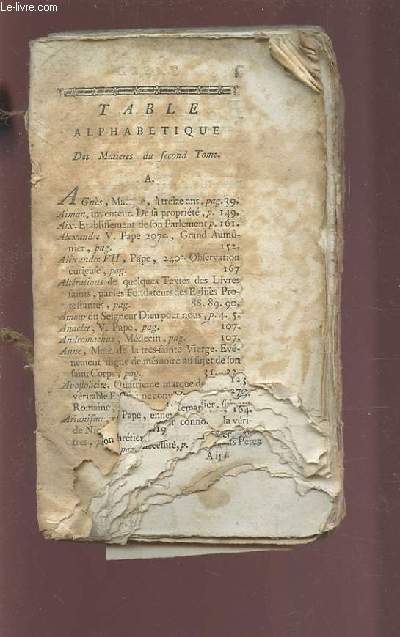 www.le-livre.com
TABLE
ALPHABETIQUE
Des Matieres du second Tome.
A.
AGnès, à treize ans, pag. 39.
Aimon, inventeur. De la propriété, p. 149.
Aix. Etablissement de son Parlement p. 161.
Alexandre V. Pape 207e, Grand Aumô-
nier, pag. 152.
Alexandre VII, Pape, 240e Observation
curieuse, pag. 167
Altérations de quelques Textes des Livres
saints, par les Fondateurs des Eglises Pro-
testantes, pag. 88. 89. 90.
Amour du Seigneur Dieu pour nous, p. 4. 5.
Anaclet, V. Pape, pag. 107.
Andromachus, Médecin, pag. 107.
Anne, Mere de la très-sainte Vierge. Evé-
nement digne de mémoire au sujet de son
saint Corps, pag.
Apostolicité. Quatrieme marque de
véritable
Romaine
Pape, 164.
la véri-
de
pag. p.